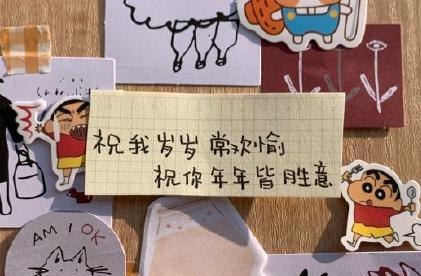 祝我岁岁常欢愉
祝你年年皆胜意
AM I OK